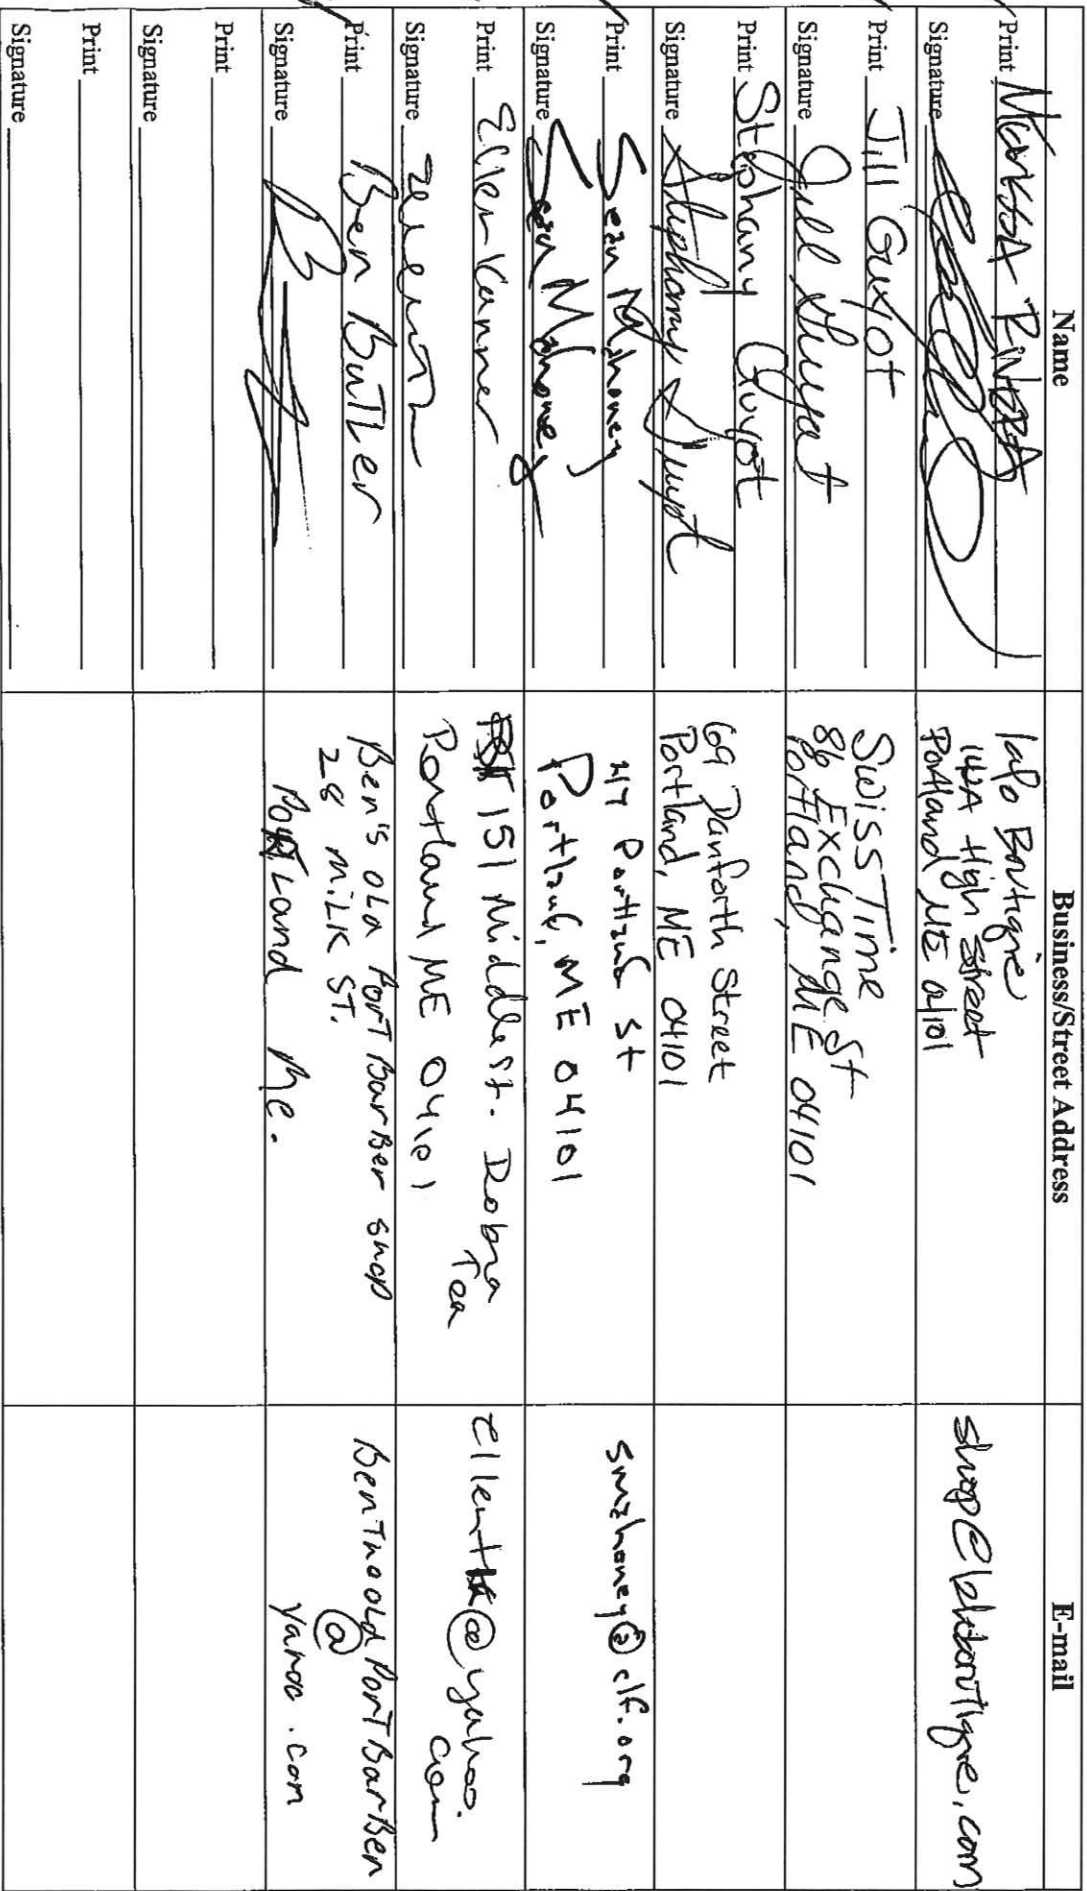 Name
Business/Street Address
E-mail
Print
Signature
Boutique
High Street
Portland ME 04101
Print Jill Guyot
Signature Jill Guyot
Swiss Time
86 Exchange St
Portland, ME 04101
Print Stephany Guyot
Signature Stephany Guyot
69 Danforth Street
Portland, ME 04101
Print Sean Mahoney
Signature Sean Mahoney
47 Portland St
Portland, ME 04101
smahoney@clf.org
Print Ellen Kanner
Signature
151 Middle St. Dobra
Tea
Portland ME 04101
@yahoo.
com
Print Ben Butler
Signature
Ben's old Port Barber shop
28 Milk ST.
Portland Me.
BenTheoldPortBarBer
@
yahoo.com
Print
Signature
Print
Signature